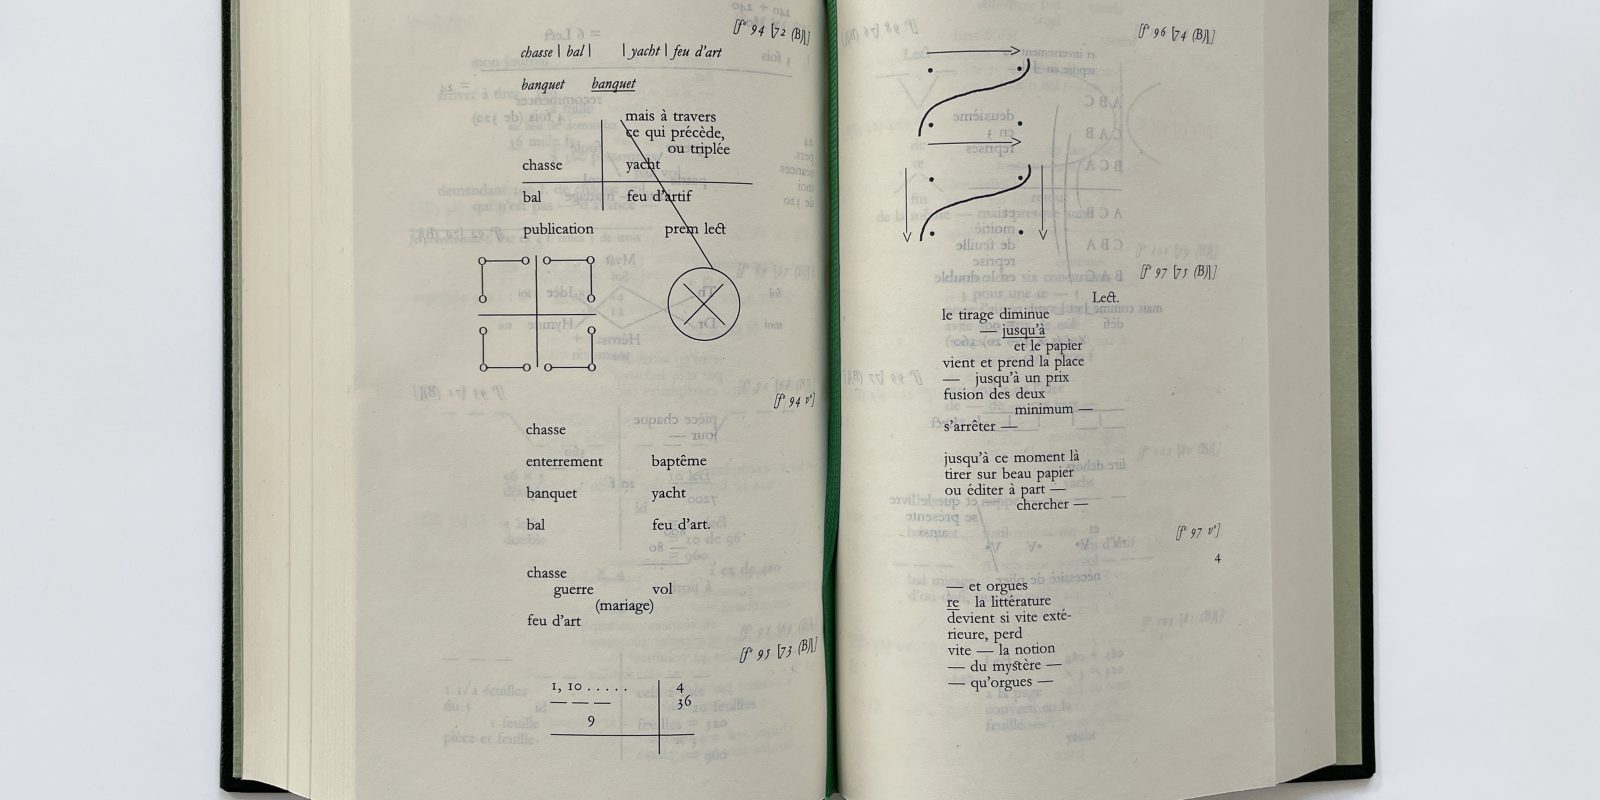 [fº 94 [72 (B)]]
chasse | bal | | yacht | feu d'art
banquet banquet
mais à travers
ce qui précède,
ou triplée
chasse yacht
bal feu d'artif
publication prem lect
[fº 94 vº]
chasse
enterrement baptême
banquet yacht
bal feu d'art.
chasse
guerre vol
(mariage)
feu d'art
[fº 95 [73 (B)]]
1, 10 . . . . . 4
— — — 36
9
[fº 96 [74 (B)]]
[fº 97 [75 (B)]]
Lect.
le tirage diminue
— jusqu'à
et le papier
vient et prend la place
— jusqu'à un prix
fusion des deux
minimum —
s'arrêter —
jusqu'à ce moment là
tirer sur beau papier
ou éditer à part —
chercher —
[fº 97 vº]
4
— et orgues
re la littérature
devient si vite exté-
rieure, perd
vite — la notion
— du mystère —
— qu'orgues —